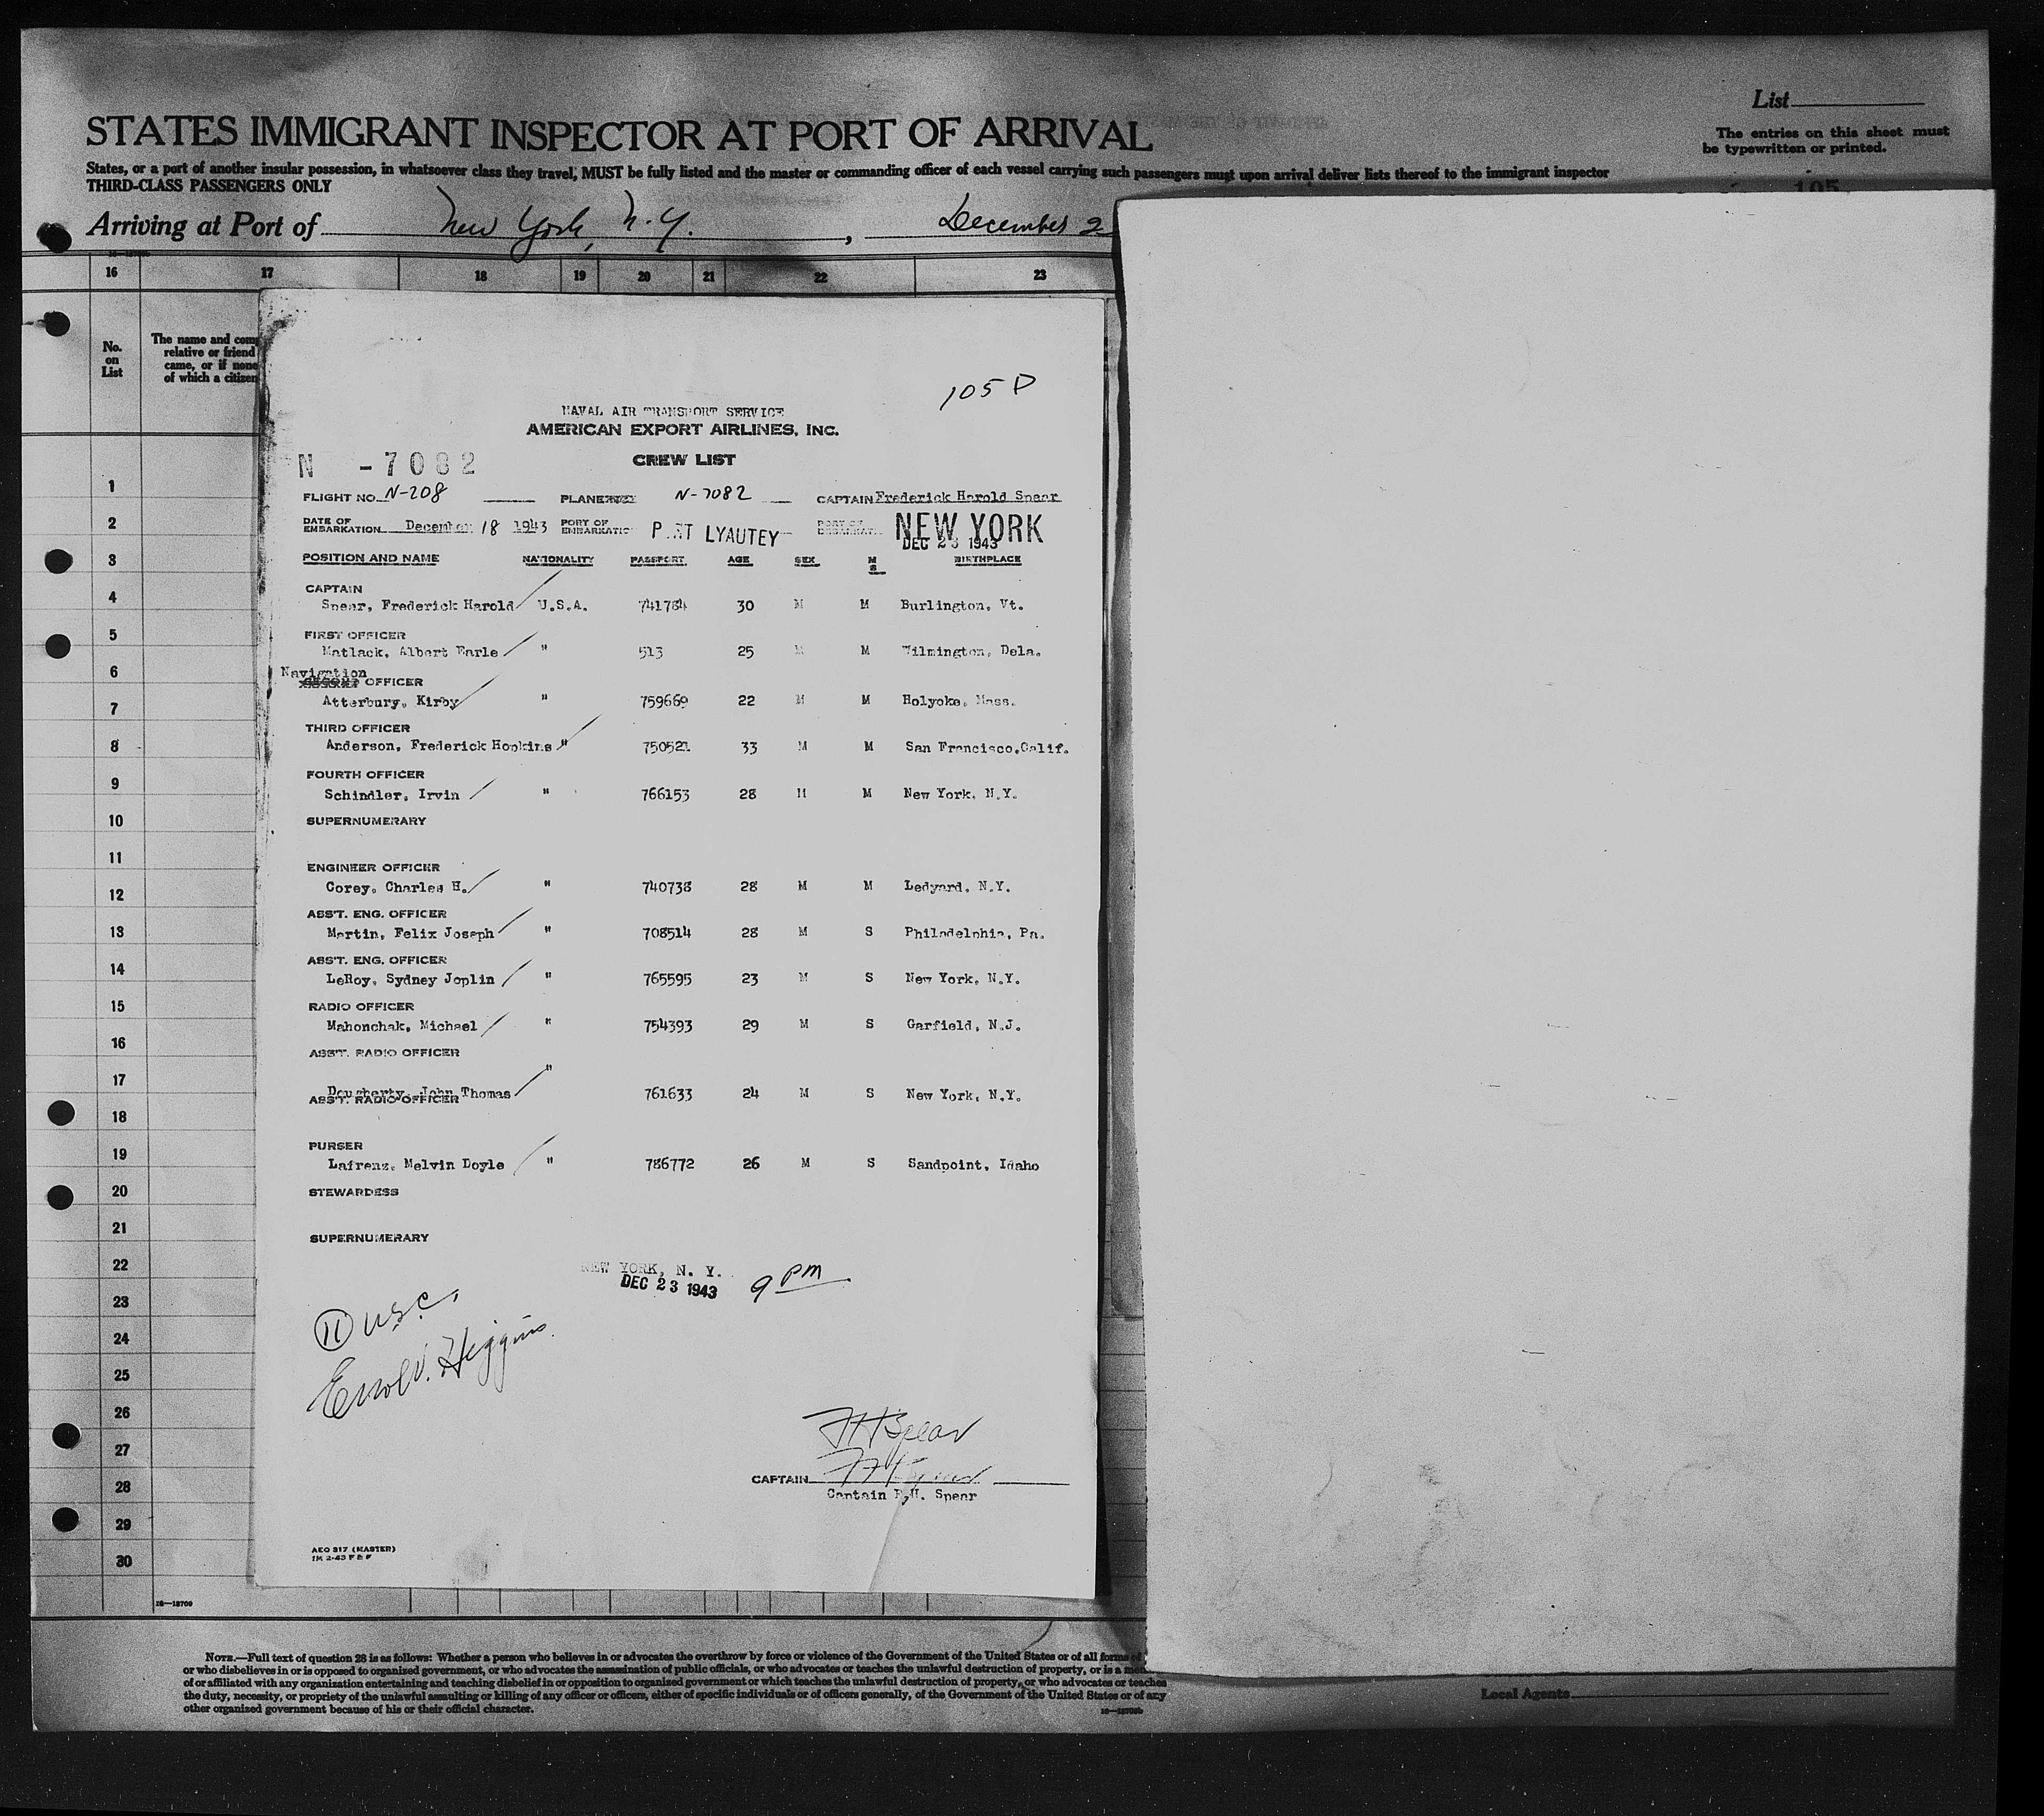 List
STATES IMMIGRANT INSPECTOR AT PORT OF ARRIVAL
The entries on this sheet must
be typewritten or printed.
States, or a port of another insular possession, in whatsoever class they travel, MUST be fully listed and the master or commanding officer of each vessel carrying such passengers must upon arrival deliver lists thereof to the immigrant inspector
THIRD-CLASS PASSENGERS ONLY
105
Arriving at Port of New York, N.Y., December 2
16 17 18 19 20 21 22 23
No.
on
List
The name and com
relative or friend
came, or if none
of which a citizen
105 D
NAVAL AIR TRANSPORT SERVICE
AMERICAN EXPORT AIRLINES, INC.
N -7082
CREW LIST
FLIGHT NO. N-208 PLANE N-7082 CAPTAIN Frederick Harold Spear
DATE OF EMBARKATION December 18 1943 PORT OF EMBARKATIO P RT LYAUTEY PORT OF NEW YORK
DEC 23 1943
POSITION AND NAME NATIONALITY PASSPORT AGE SEX M S BIRTHPLACE
CAPTAIN
Spear, Frederick Harold U.S.A. 741784 30 M M Burlington, Vt.
FIRST OFFICER
Matlack, Albert Earle " 513 25 M M Wilmington, Dela.
Navigation
OFFICER
Atterbury, Kirby " 759669 22 M M Holyoke, Mass.
THIRD OFFICER
Anderson, Frederick Hopkins " 750521 33 M M San Francisco,Calif.
FOURTH OFFICER
Schindler, Irvin " 766153 28 M M New York, N.Y.
SUPERNUMERARY
ENGINEER OFFICER
Corey, Charles H. " 740738 28 M M Ledyard, N.Y.
ASS'T. ENG. OFFICER
Martin, Felix Joseph " 708514 28 M S Philadelphia, Pa.
ASS'T. ENG. OFFICER
LeRoy, Sydney Joplin " 765595 23 M S New York, N.Y.
RADIO OFFICER
Mahonchak, Michael " 754393 29 M S Garfield, N.J.
ASS'T. RADIO OFFICER
Dougherty, John Thomas " 761633 24 M S New York, N.Y.
ASS'T. RADIO OFFICER
PURSER
Lafrenz, Melvin Doyle " 786772 26 M S Sandpoint, Idaho
STEWARDESS
SUPERNUMERARY
NEW YORK, N. Y.
DEC 23 1943 9 PM
11 USC.
Errol V. Higgins
FHSpear
CAPTAIN FHSpear
Captain F.H. Spear
AEO 317 (MASTER)
1M 2-43 F & F
1
2
3
4
5
6
7
8
9
10
11
12
13
14
15
16
17
18
19
20
21
22
23
24
25
26
27
28
29
30
16—18709
NOTE.—Full text of question 28 is as follows: Whether a person who believes in or advocates the overthrow by force or violence of the Government of the United States or of all forms of
or who disbelieves in or is opposed to organized government, or who advocates the assassination of public officials, or who advocates or teaches the unlawful destruction of property, or is a mem
of or affiliated with any organization entertaining and teaching disbelief in or opposition to organized government or which teaches the unlawful destruction of property, or who advocates or teaches
the duty, necessity, or propriety of the unlawful assaulting or killing of any officer or officers, either of specific individuals or of officers generally, of the Government of the United States or of any
other organized government because of his or their official character.
Local Agents